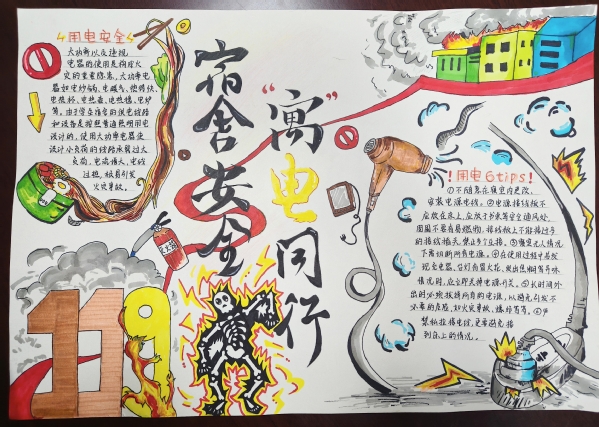 用电安全
大功率以及违规
电器的使用是构成火
灾的重要隐患。大功率电
器如电炒锅、电磁气、热得快、
电热杯、电热毯、电热锅、电炉
等。由于学生宿舍的供电线路
和设备是按照普通照明用电
设计的,使用大功率电器使
设计小负荷的线路承载过大
负荷,电流增大,电线
过热,极易引发
火灾事故。
宿舍安全
“寓”电同行
灭火器
119
!用电6tips!
①不随意在寝室内更改、
安装电源电线。②电源接线板不
应放在床上,应放于干净等安全通风处,
周围不要有易燃物,接线板上不能接过多
的接线插头,禁止多个互接。③寝室无人情况
下需切断所有电源。④在使用过程中若发
现充电器、台灯有冒火花、发出焦糊等异味
情况时,应立即关掉电源开关。⑤长时间外
出时必须拔掉所有的电源,以避免引发不
必要的危险,如火灾事故、爆炸等等。⑥严
禁私拉接电线,更要避免接
到床上的情况。